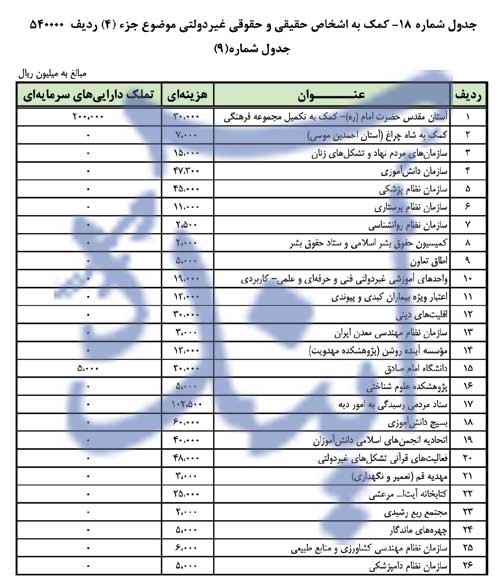 جدول شماره ۱۸- کمک به اشخاص حقیقی و حقوقی غیردولتی موضوع جزء (۴) ردیف ۵۴۰۰۰۰
جدول شماره(۹)
مبالغ به میلیون ریال
ردیف عنـــوان هزینه‌ای تملک دارایی‌های سرمایه‌ای
۱ آستان مقدس حضرت امام (ره)- کمک به تکمیل مجموعه فرهنگی ۳۰،۰۰۰ ۲۰۰،۰۰۰
۲ کمک به شاه چراغ (آستان احمدبن موسی) ۷،۰۰۰ ۰
۳ سازمان‌های مردم نهاد و تشکل‌های زنان ۱۵،۰۰۰ ۰
۴ سازمان دانش‌آموزی ۴۷،۳۰۰ ۰
۵ سازمان نظام پزشکی ۴۵،۰۰۰ ۰
۶ سازمان نظام پرستاری ۱۱،۰۰۰ ۰
۷ سازمان نظام روانشناسی ۲،۵۰۰ ۰
۸ کمیسیون حقوق بشر اسلامی و ستاد حقوق بشر ۲،۰۰۰ ۰
۹ اطاق تعاون ۵،۰۰۰ ۰
۱۰ واحدهای آموزشی غیردولتی فنی و حرفه‌ای و علمی- کاربردی ۱۹،۰۰۰ ۰
۱۱ اعتبار ویژه بیماران کبدی و پیوندی ۱۲،۰۰۰ ۰
۱۲ اقلیت‌های دینی ۳۰،۰۰۰ ۰
۱۳ سازمان نظام مهندسی معدن ایران ۳،۰۰۰ ۰
۱۴ مؤسسه آینده روشن (پژوهشکده مهدویت) ۱۲،۰۰۰ ۰
۱۵ دانشگاه امام صادق ۲۰،۰۰۰ ۵،۰۰۰
۱۶ پژوهشکده علوم شناختی ۵،۰۰۰ ۰
۱۷ ستاد مردمی رسیدگی به امور دیه ۱۰۲،۵۰۰ ۰
۱۸ بسیج دانش‌آموزی ۶۰،۰۰۰ ۰
۱۹ اتحادیه انجمن‌های اسلامی دانش‌آموزان ۴۰،۰۰۰ ۰
۲۰ فعالیت‌های قرآنی تشکل‌های غیردولتی ۴۸،۰۰۰ ۰
۲۱ مهدیه قم (تعمیر و نگهداری) ۳،۰۰۰ ۰
۲۲ کتابخانه آیت‌ا... مرعشی ۲۵،۰۰۰ ۰
۲۳ مجتمع ربع رشیدی ۲،۰۰۰ ۰
۲۴ چهره‌های ماندگار ۵،۰۰۰ ۰
۲۵ سازمان نظام مهندسی کشاورزی و منابع طبیعی ۶،۰۰۰ ۰
۲۶ سازمان نظام دامپزشکی ۵،۰۰۰ ۰